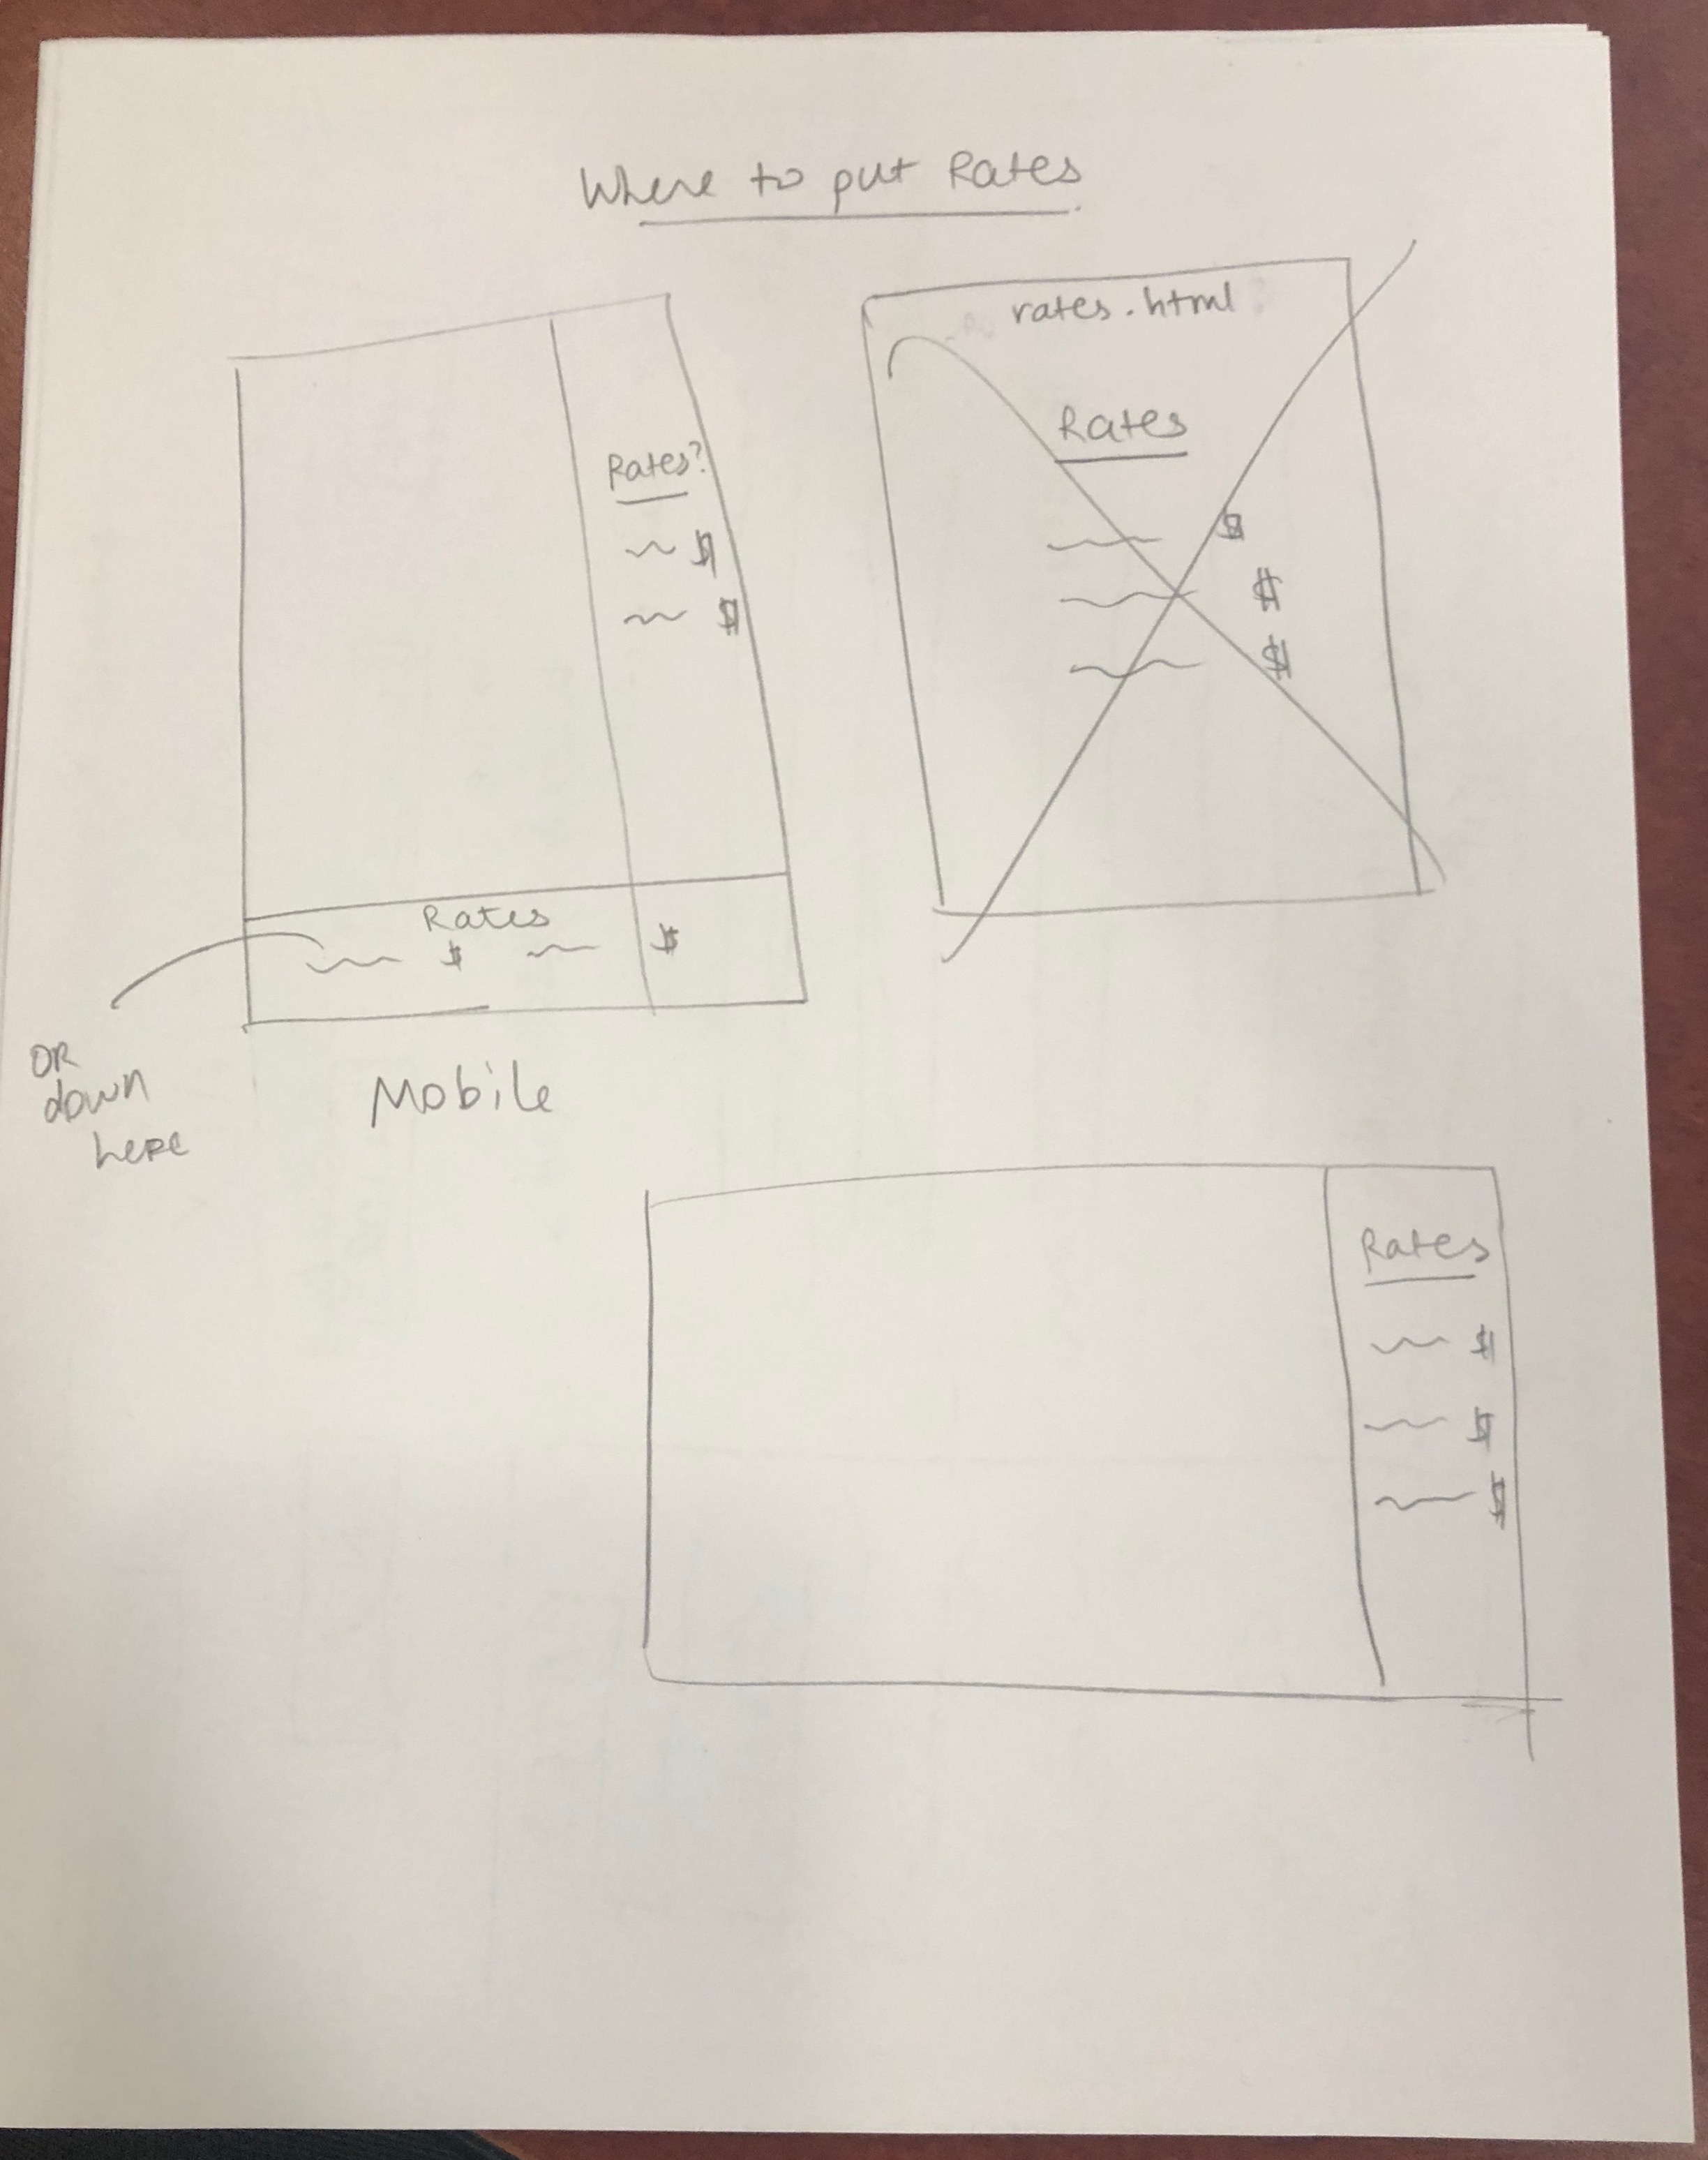 Where to put Rates
Rates?
$
$
Rates
$ $
OR
down
here
Mobile
rates.html
Rates
$
$
$
Rates
$
$
$